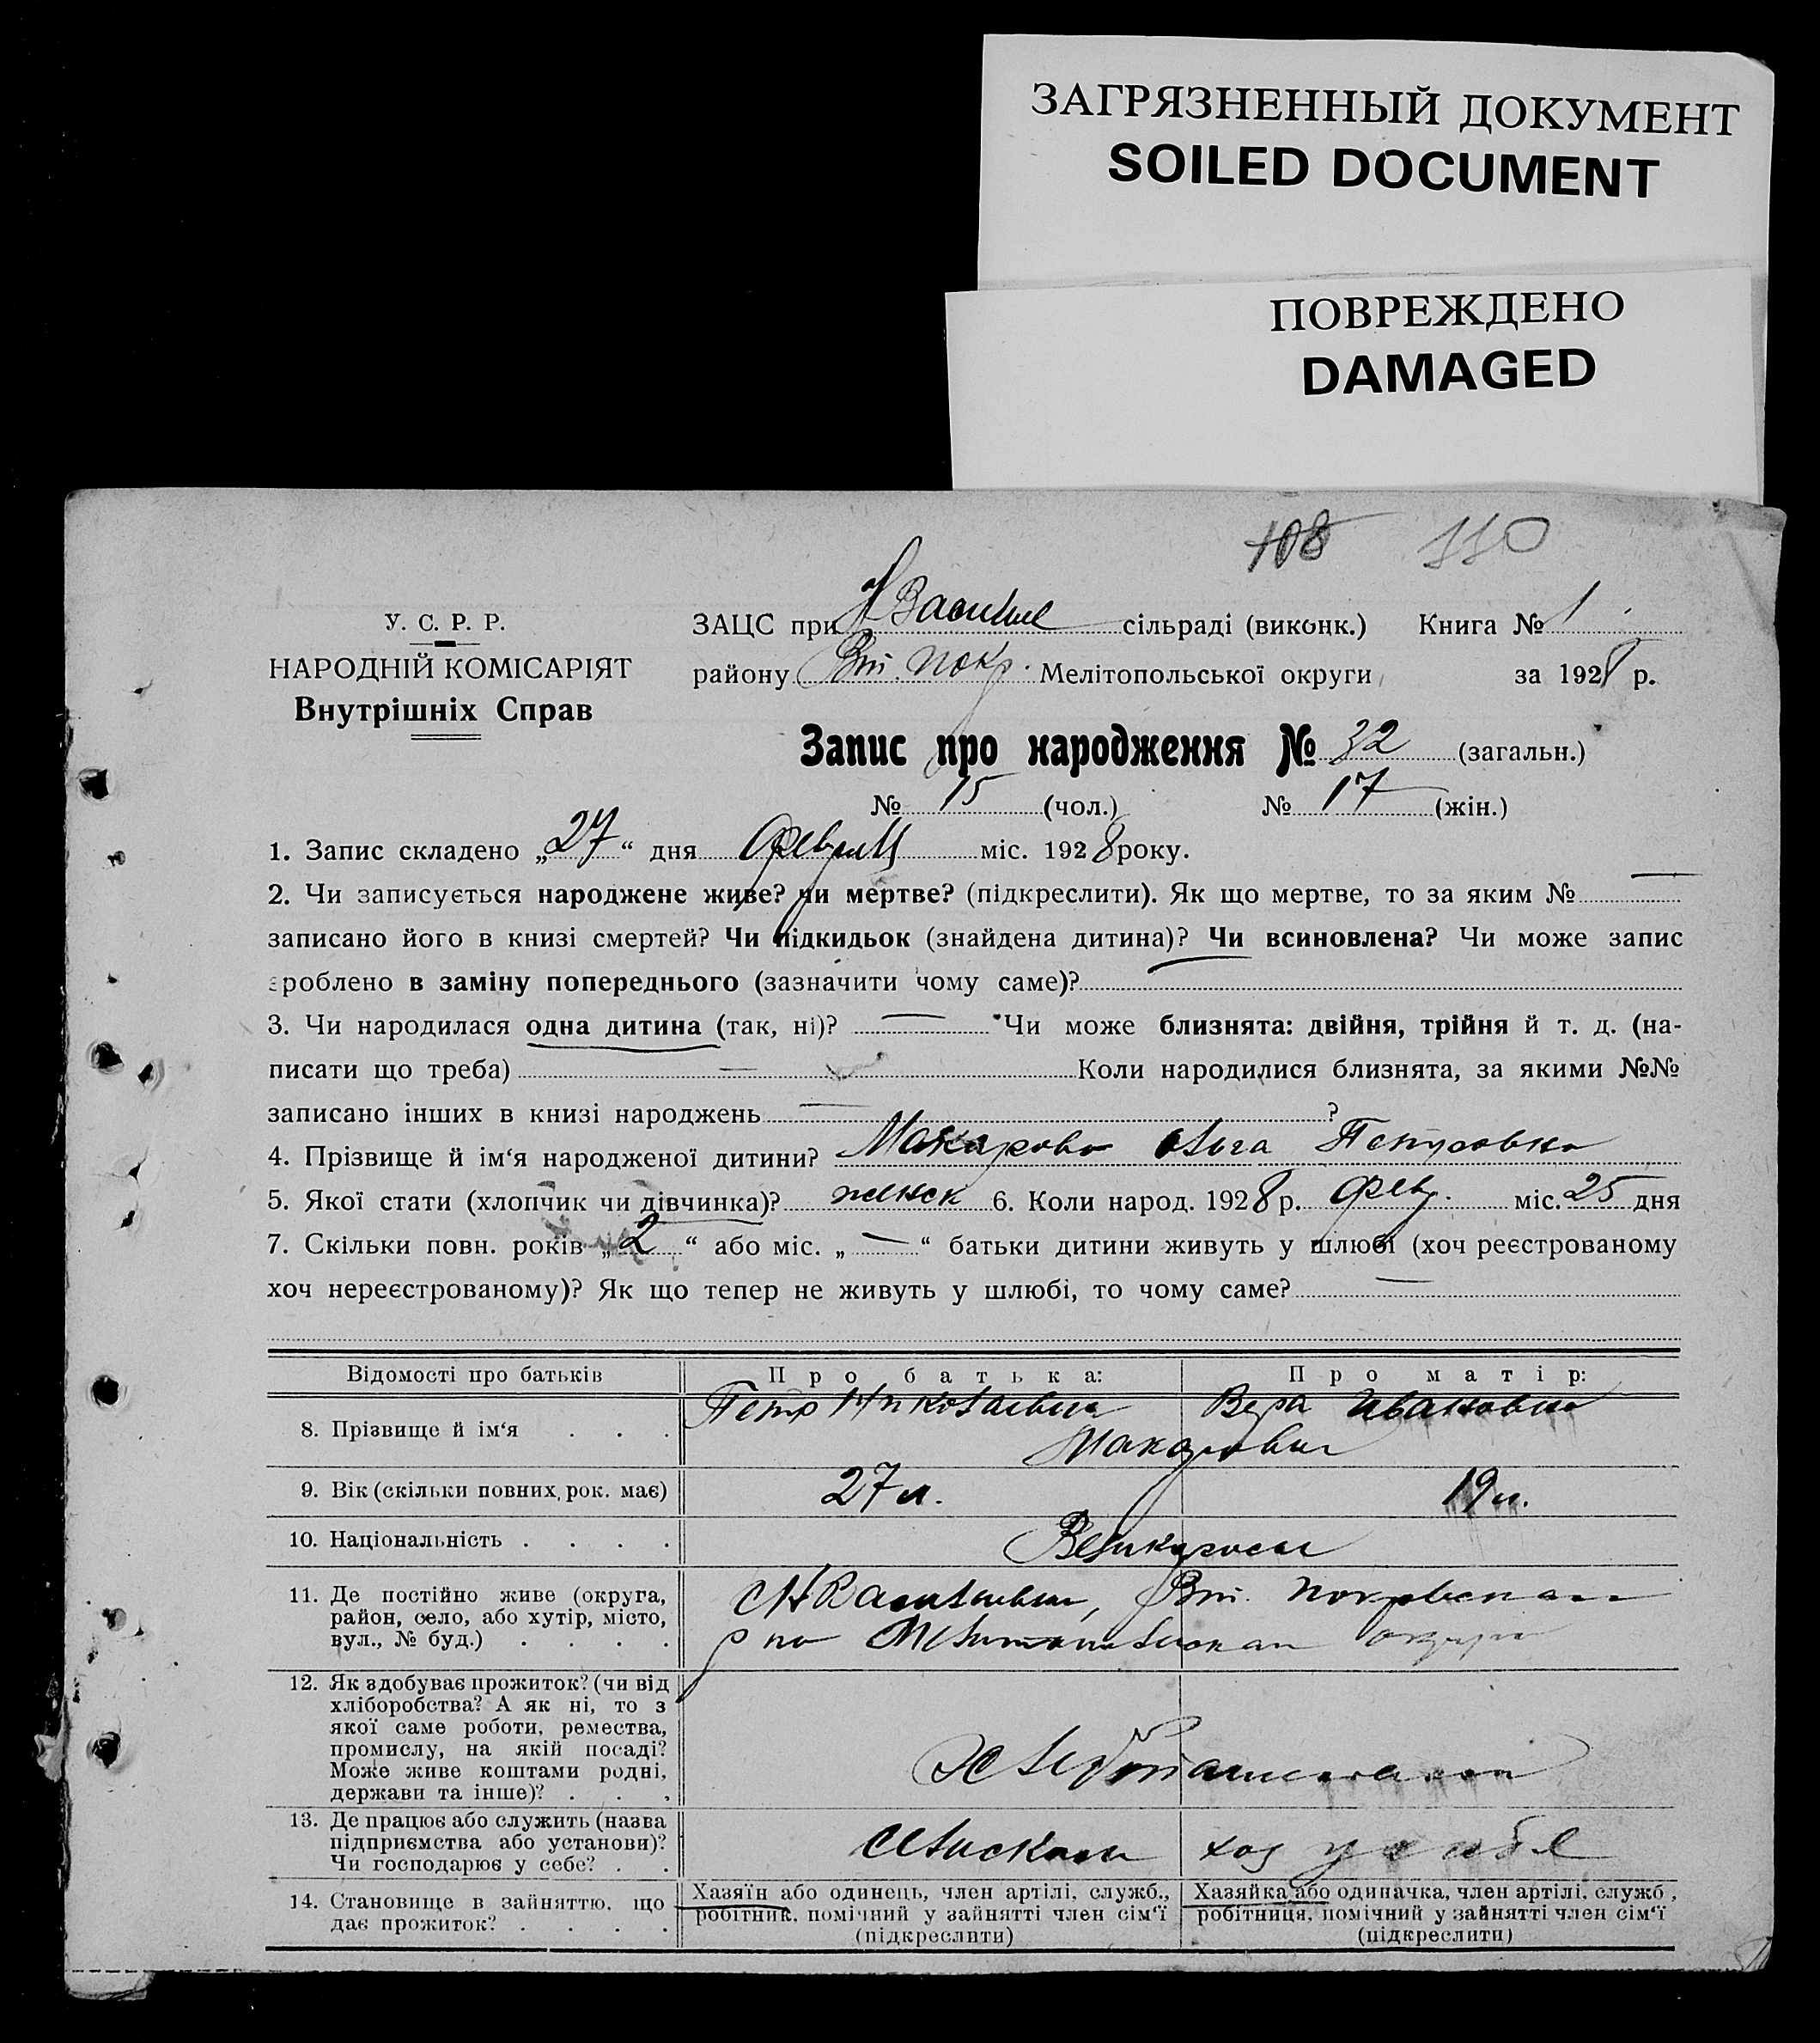 ЗАГРЯЗНЕННЫЙ ДОКУМЕНТ
SOILED DOCUMENT
ПОВРЕЖДЕНО
DAMAGED
108 110
У. С. Р. Р.
НАРОДНІЙ КОМІСАРІЯТ
Внутрішніх Справ
ЗАЦС при сільраді (виконк.) Книга № 1
району Вт. Покр. Мелітопольської округи за 1928 р.
Запис про народження № 32 (загальн.)
№ 15 (чол.) № 17 (жін.)
1. Запис складено „27“ дня февраля міс. 1928 року.
2. Чи записується народжене живе? чи мертве? (підкреслити). Як що мертве, то за яким № —
записано його в книзі смертей? Чи підкидьок (знайдена дитина)? Чи всиновлена? Чи може запис
зроблено в заміну попереднього (зазначити чому саме)? —
3. Чи народилася одна дитина (так, ні)? — Чи може близнята: двійня, трійня й т. д. (на-
писати що треба) — Коли народилися близнята, за якими №№
записано інших в книзі народжень — ?
4. Прізвище й ім‘я народженої дитини? Макарова Ольга Петровна
5. Якої стати (хлопчик чи дівчинка)? женск 6. Коли народ. 1928 р. февр. міс. 25 дня
7. Скільки повн. років „2“ або міс. „—“ батьки дитини живуть у шлюбі (хоч реєстрованому
хоч нереєстрованому)? Як що тепер не живуть у шлюбі, то чому саме? —
Відомості про батьків Про батька: Про матір:
8. Прізвище й ім‘я . . . Петр Николаевич Вера Ивановна
Макаровы
9. Вік (скільки повних рок. має) 27 л. 19 л.
10. Національність . . . . Великоросы
11. Де постійно живе (округа,
район, село, або хутір, місто,
вул., № буд.) . . . .
С Н Васильевка, Вт. Покровского
р на Мелитопольского округа
12. Як здобуває прожиток? (чи від
хліборобства? А як ні, то з
якої саме роботи, ремества,
промислу, на якій посаді?
Може живе коштами родні,
держави та інше)? . . .
Хлебопашеством
13. Де працює або служить (назва
підприємства або установи)?
Чи господарює у себе? . .
сельское хоз у себя
14. Становище в зайняттю, що
дає прожиток? . . . .
Хазяїн або одинець, член артілі, служб.,
робітник, помічний у зайнятті член сім‘ї
(підкреслити)
Хазяйка або одиначка, член артілі, служб.,
робітниця, помічний у зайнятті член сім‘ї
(підкреслити)